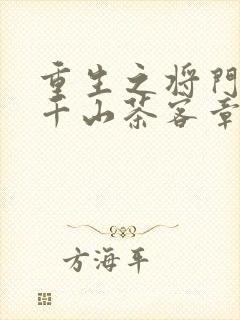 重生之将门
千山茶客章
方海平